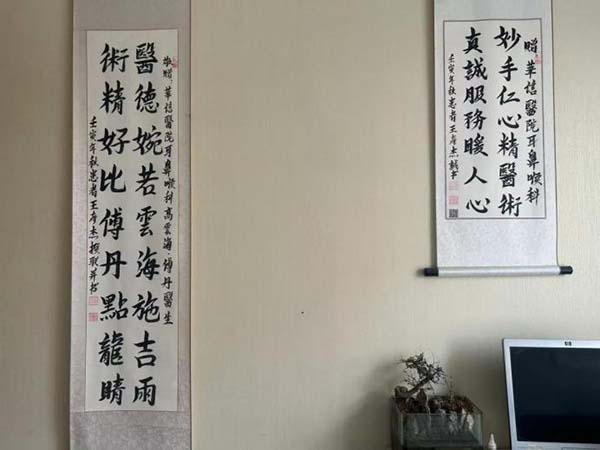 敬贈：華信醫院耳鼻喉科高雲海傅丹醫生
醫德婉若雲海施吉雨
術精好比傅丹點龍睛
壬寅年秋患者王彦杰撰联并书
贈華信醫院耳鼻喉科
妙手仁心精醫術
真誠服務暖人心
壬寅年秋患者王彦杰敬书